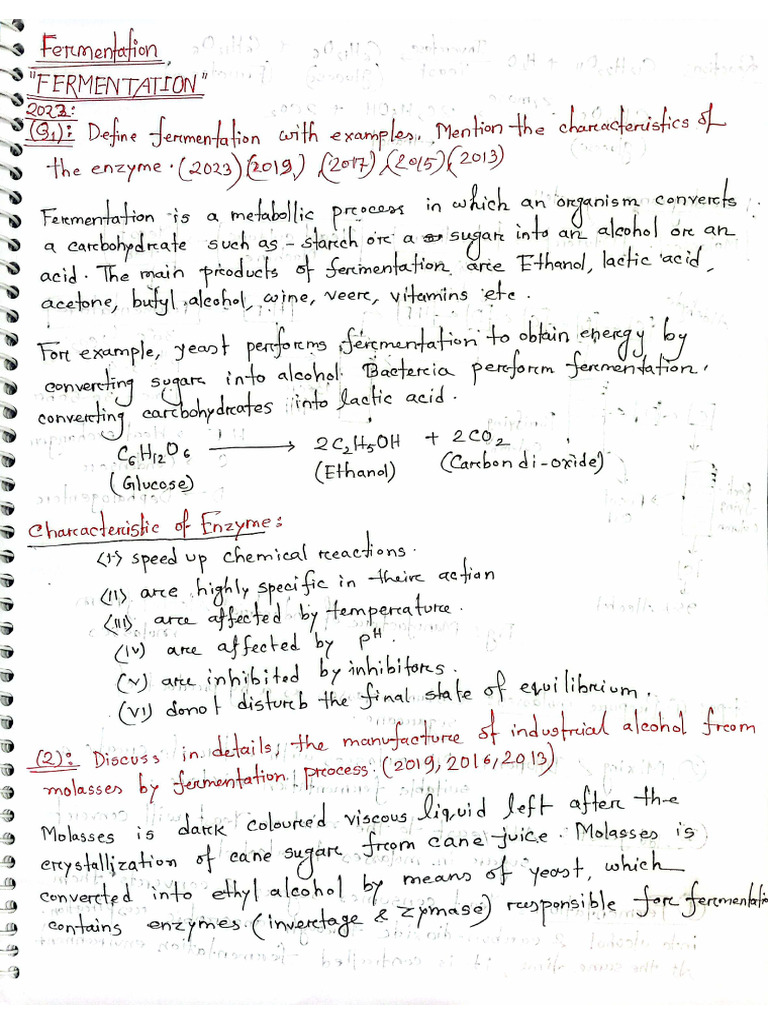 Fermentation,
"FERMENTATION"
2023:
(Q1): Define fermentation with examples. Mention the characteristics of
the enzyme. (2023)(2019), (2017), (2015)(2013)
Fermentation is a metabollic process in which an organism converts
a carbohydrate such as - starch or a sugar into an alcohol or an
acid. The main products of fermentation are Ethanol, lactic acid,
acetone, butyl alcohol, wine, veere, vitamins etc.
For example, yeast performs fermentation to obtain energy by
converting sugar into alcohol. Bactercia perform fermentation,
converting carbohydrates into lactic acid.
C6H12O6 → 2C2H5OH + 2CO2
(Glucose) (Ethanol) (Carbon di-oxide)
Characteristic of Enzyme:
(I) speed up chemical reactions.
(II) are highly specific in their action
(III) are affected by temperature.
(IV) are affected by pH.
(V) are inhibited by inhibitores.
(VI) donot disturb the final state of equilibrium.
(2): Discuss in details, the manufacture of industrial alcohol from
molasses by fermentation process: (2019, 2016, 2013)
Molasses is dark coloured viscous liquid left after the
crystallization of cane sugar from cane juice. Molasses is
converted into ethyl alcohol by means of yeast, which
contains enzymes (invertage & zymase) responsible for fermentatio